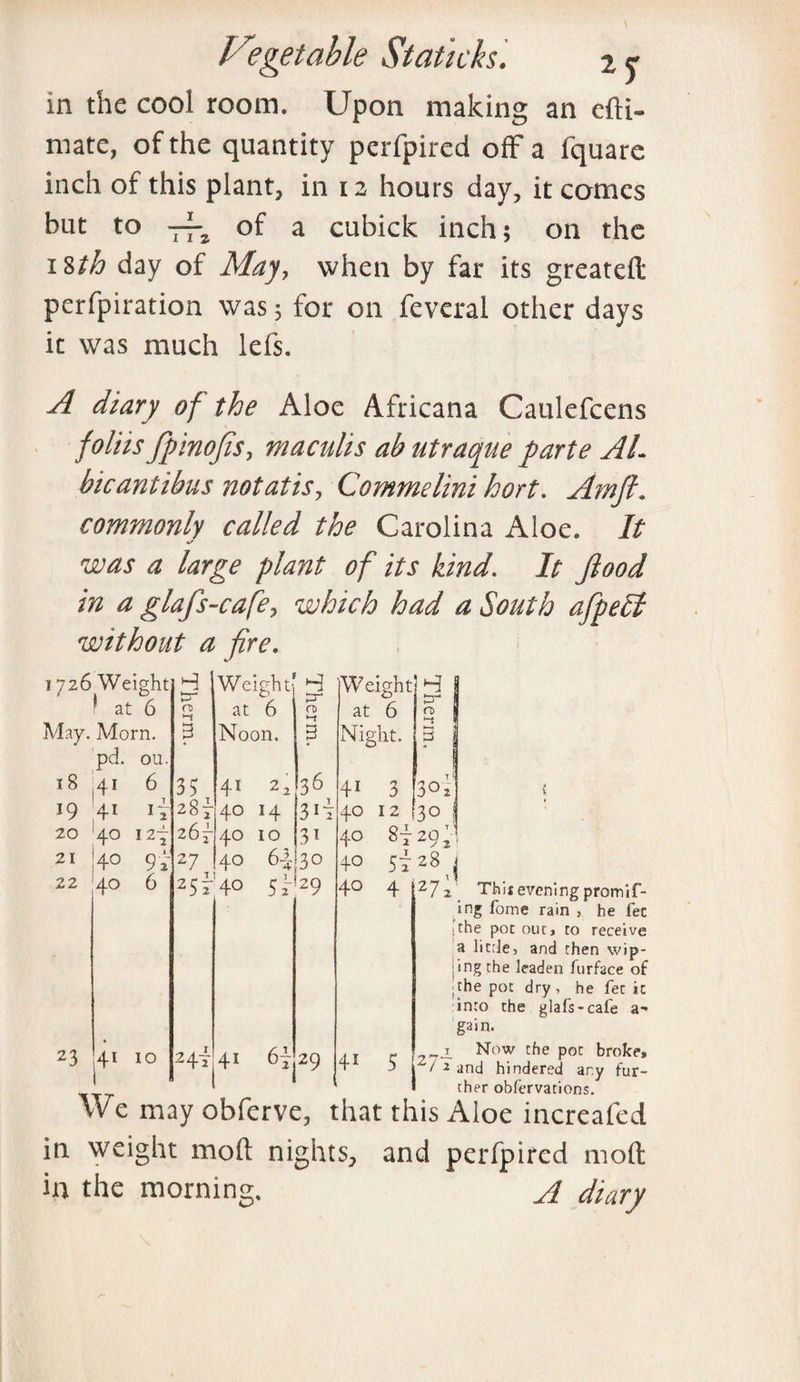 Vegetable Staticks. 25
in the cool room. Upon making an eſti-
mate, of the quantity perſpired off a ſquare
inch of this plant, in 12 hours day, it comes
but to 1/112 of a cubick inch; on the
18th day of May, when by far its greateſt
perſpiration was; for on ſeveral other days
it was much leſs.
A diary of the Aloe Africana Cauleſcens
foliis ſpinoſis, maculis ab utraque parte Al-
bicantibus notatis, Commelini hort. Amſt.
commonly called the Carolina Aloe. It
was a large plant of its kind. It ſtood
in a glaſs-caſe, which had a South aſpect
without a fire.
1726 Weight Therm. Weight Therm. Weight Therm.
at 6 at 6 at 6
May. Morn. Noon. Night.
pd. ou.
18 41 6 35 41 2½ 36 41 3 30½
19 41 1½ 28½ 40 14 31½ 40 12 30
20 40 12½ 26½ 40 10 31 40 8½ 29½
21 40 9½ 27 40 6¾ 30 40 5½ 28
22 40 6 25½ 40 5½ 29 40 4 27½ This evening promiſ-
ing ſome rain, he ſet
the pot out, to receive
a little, and then wip-
ing the leaden ſurface of
the pot dry, he ſet it
into the glaſs-caſe a-
gain.
23 41 10 24½ 41 6½ 29 41 5 27½ Now the pot broke,
and hindered any fur-
ther obſervations.
We may obſerve, that this Aloe increaſed
in weight moſt nights, and perſpired moſt
in the morning. A diary